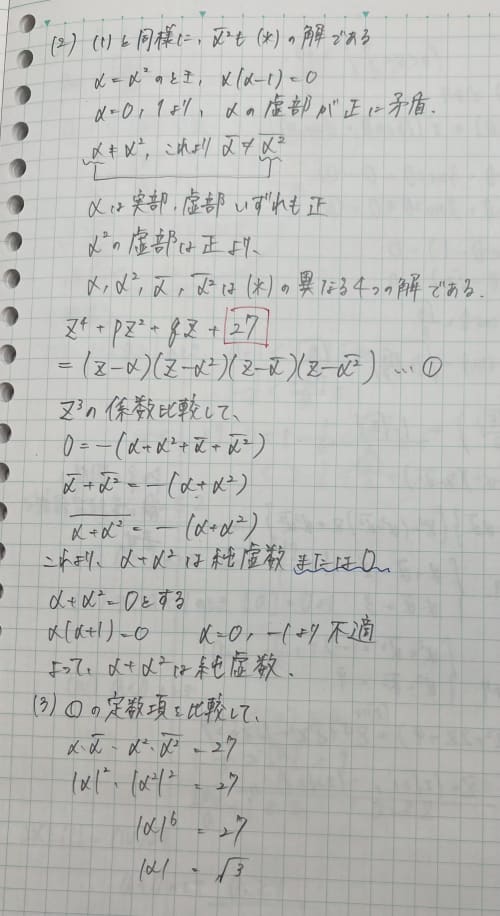 (2) (1)と同様に、\overline{α²}も(*)の解である
α=α²のとき, α(α-1)=0
α=0, 1より, αの虚部が正に矛盾.
α≠α², これより \overline{α}≠\overline{α²}
αは実部,虚部いずれも正
α²の虚部は正より、
α, α², \overline{α}, \overline{α²}は(*)の異なる4つの解である.
z⁴+pz²+qz+27
=(z-α)(z-α²)(z-\overline{α})(z-\overline{α²}) …①
z³の係数比較して、
0=-(α+α²+\overline{α}+\overline{α²})
\overline{α}+\overline{α²}=-(α+α²)
\overline{α+α²}=-(α+α²)
これより、α+α²は純虚数または0
α+α²=0とする
α(α+1)=0 α=0, -1より不適
よって、α+α²は純虚数.
(3) ①の定数項を比較して、
α・\overline{α}・α²・\overline{α²}=27
|α|²・|α²|²=27
|α|⁶=27
|α|=√3